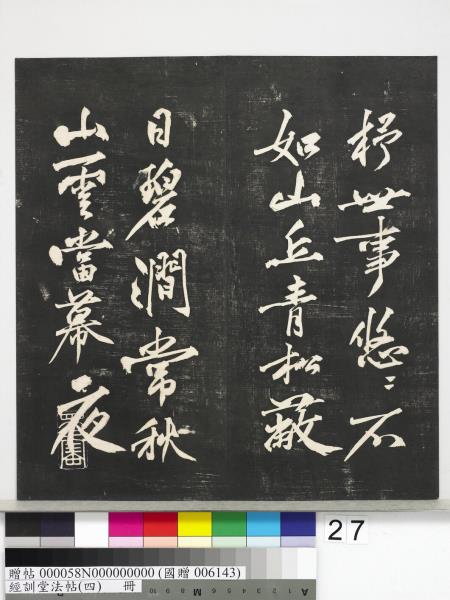 杼世事悠〻不
如山丘青松蔽
日碧澗常秋
山雲當幕夜
27
贈帖 000058N000000000 (國贈 006143)
經訓堂法帖(四) 冊